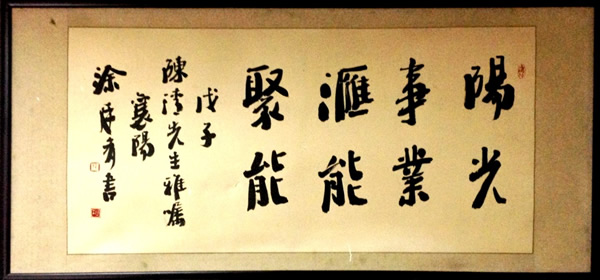 陽光
事業
滙能
聚能
戊子
陳清先生雅嘱
襄陽
涂廷多書